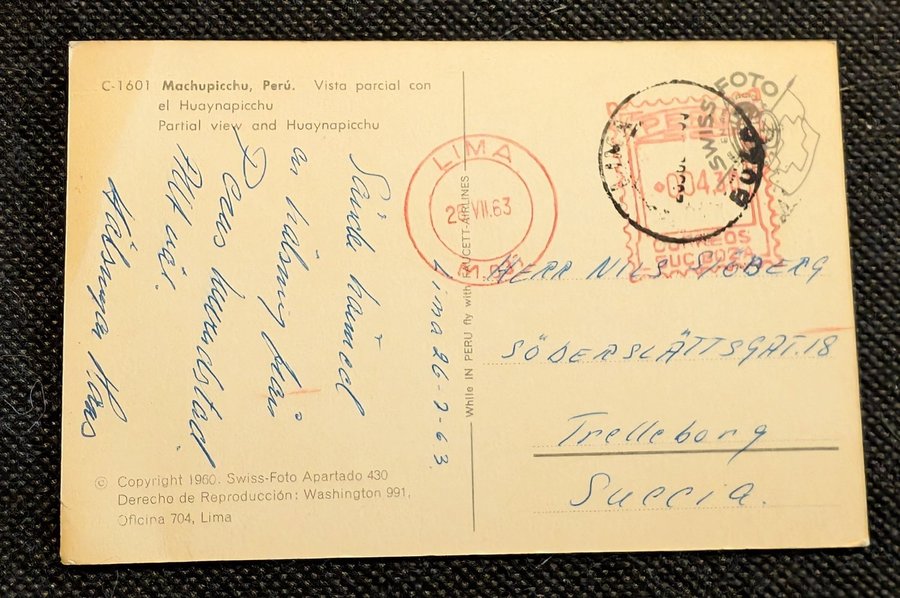 C-1601 Machupicchu, Perú. Vista parcial con
el Huaynapicchu
Partial view and Huaynapicchu
Lima 26-7-63.
Sänder härmed
en hälsning från
Perus huvudstad
Allt väl.
Hälsningar
© Copyright 1960. Swiss-Foto Apartado 430
Derecho de Reproducción: Washington 991,
Oficina 704, Lima
While IN PERU fly with FAUCETT-AIRLINES
LIMA
26 VII.63
SWISS FOTO
PERU
004.30
CORREOS
HERR NILS SJÖBERG
SÖDERSLÄTTSGAT. 18
Trelleborg
Suecia.